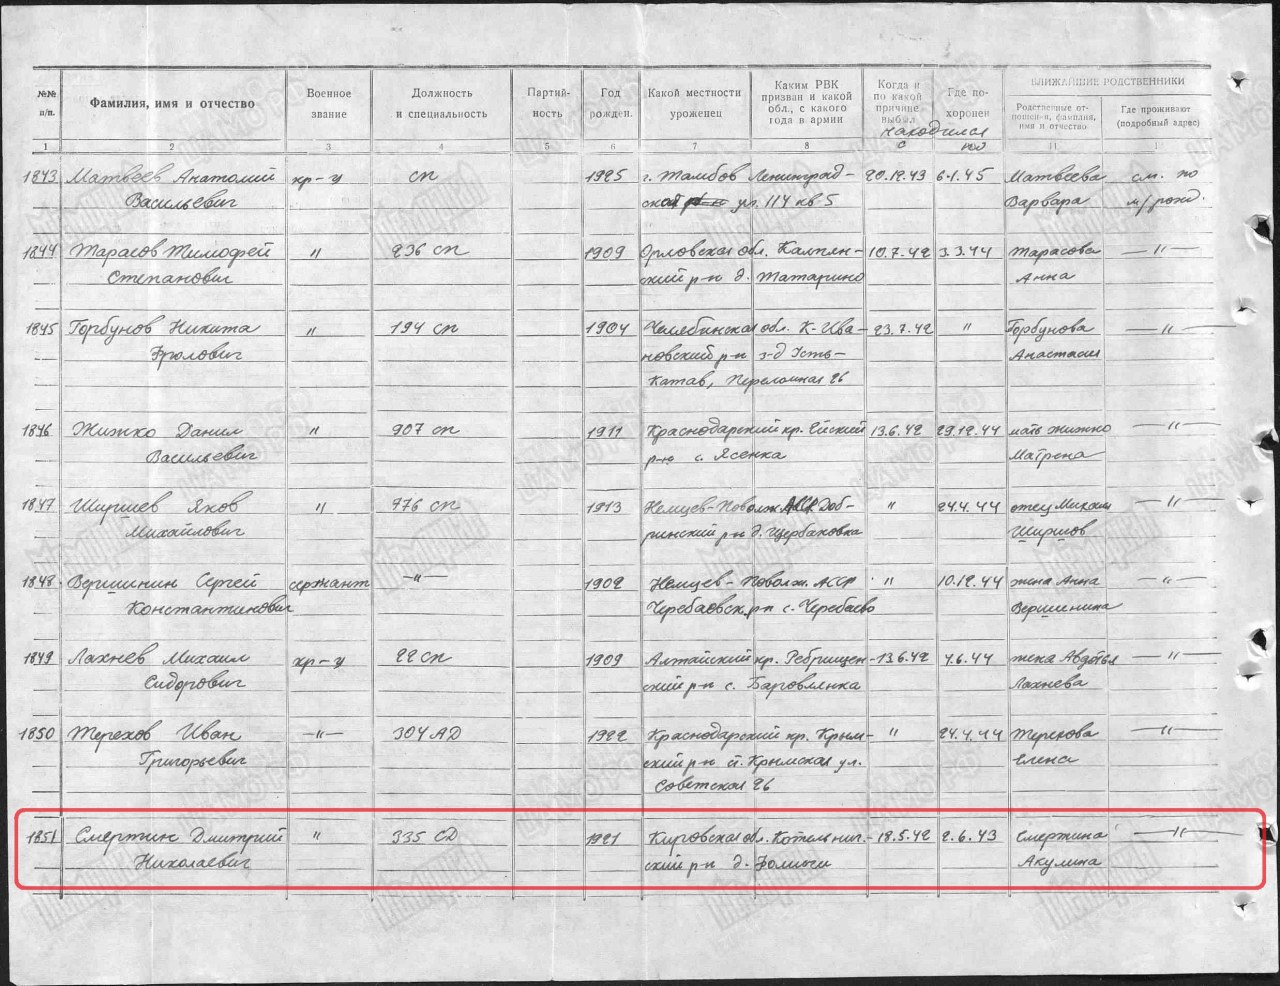 №№ п/п. Фамилия, имя и отчество Военное звание Должность и специальность Партийность Год рожден. Какой местности уроженец Каким РВК призван и какой обл., с какого года в армии Когда и по какой причине выбыл Где похоронен БЛИЖАЙШИЕ РОДСТВЕННИКИ
Родственные отношен-я, фамилия, имя и отчество Где проживают (подробный адрес)
находился
с по
1 2 3 4 5 6 7 8 11
1843 Матвеев Анатолий кр-ц сп 1925 г. Тамбов Ленинград- 20.12.43 6.1.45 Матвеева см. по
Васильевич ская ул. 114 кв 5 Варвара м/рожд.
1844 Тарасов Тимофей " 236 сп 1909 Орловская обл. 10.7.42 3.3.44 Тарасова —"—
Степанович ский р-н д. Татарино Анна
1845 Горбунов Никита " 194 сп 1904 Челябинская обл. К-Ива- 23.7.42 " Горбунова —"—
Фролович новский р-н з-д Усть- Анастасия
Катав, 26
1846 Жижко Данил " 907 сп 1911 Краснодарский кр. Ейский 13.6.42 29.12.44 мать Жижко —"—
Васильевич р-н с. Ясенка Матрена
1847 Ширшев Яков " 976 сп 1913 Немцев-Поволж АССР Доб- " 24.4.44 отец Михаил —"—
Михайлович ринский р-н д. Щербаковка Ширшов
1848 Вершинин Сергей сержант —"— 1902 Немцев-Поволж. АССР " 10.12.44 жена Анна —"—
Константинович Черебаевск. р-н с. Черебаево Вершинина
1849 Лахнев Михаил кр-ц 22 сп 1909 Алтайский кр. Ребрищен- 13.6.42 4.6.44 жена Авдотья —"—
Сидорович ский р-н с. Лахнева
1850 Терехов Иван —"— 304 АД 1922 Краснодарский кр. Крым- " 24.4.44 Терехова —"—
Григорьевич ский р-н ст. Крымская ул. Елена
Советская 26
1851 Смертин Дмитрий " 335 СД 1921 Кировская обл. Котельнич- 18.5.42 2.6.43 Смертина —"—
Николаевич ский р-н д. Фомичи Акулина